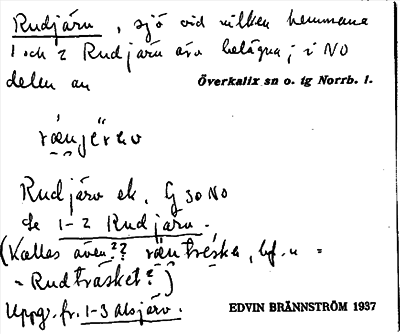 Rudjärv, sjö vid vilken hemmana
1 och 2 Rudjärv äro belägna; i NO
delen av Överkalix sn o. tg Norrb. l.
Rudjärv ek. G 30 NO
de 1-2 Rudjärv.
(Kallas även??
- Rudträsket?)
Uppg. fr. 1-3 Alsjärv. EDVIN BRÄNNSTRÖM 1937